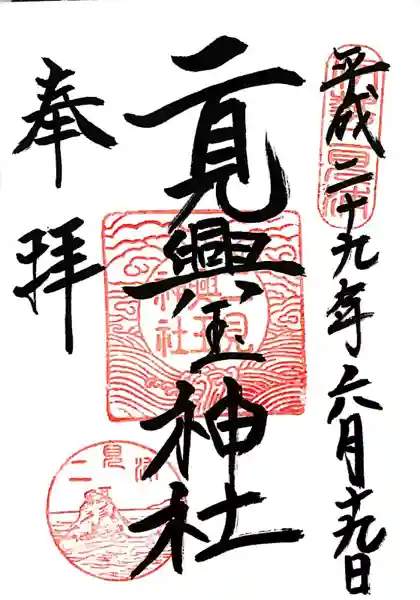 平成二十九年六月十九日
二見興玉神社
奉拝
二見興玉神社
二見浦